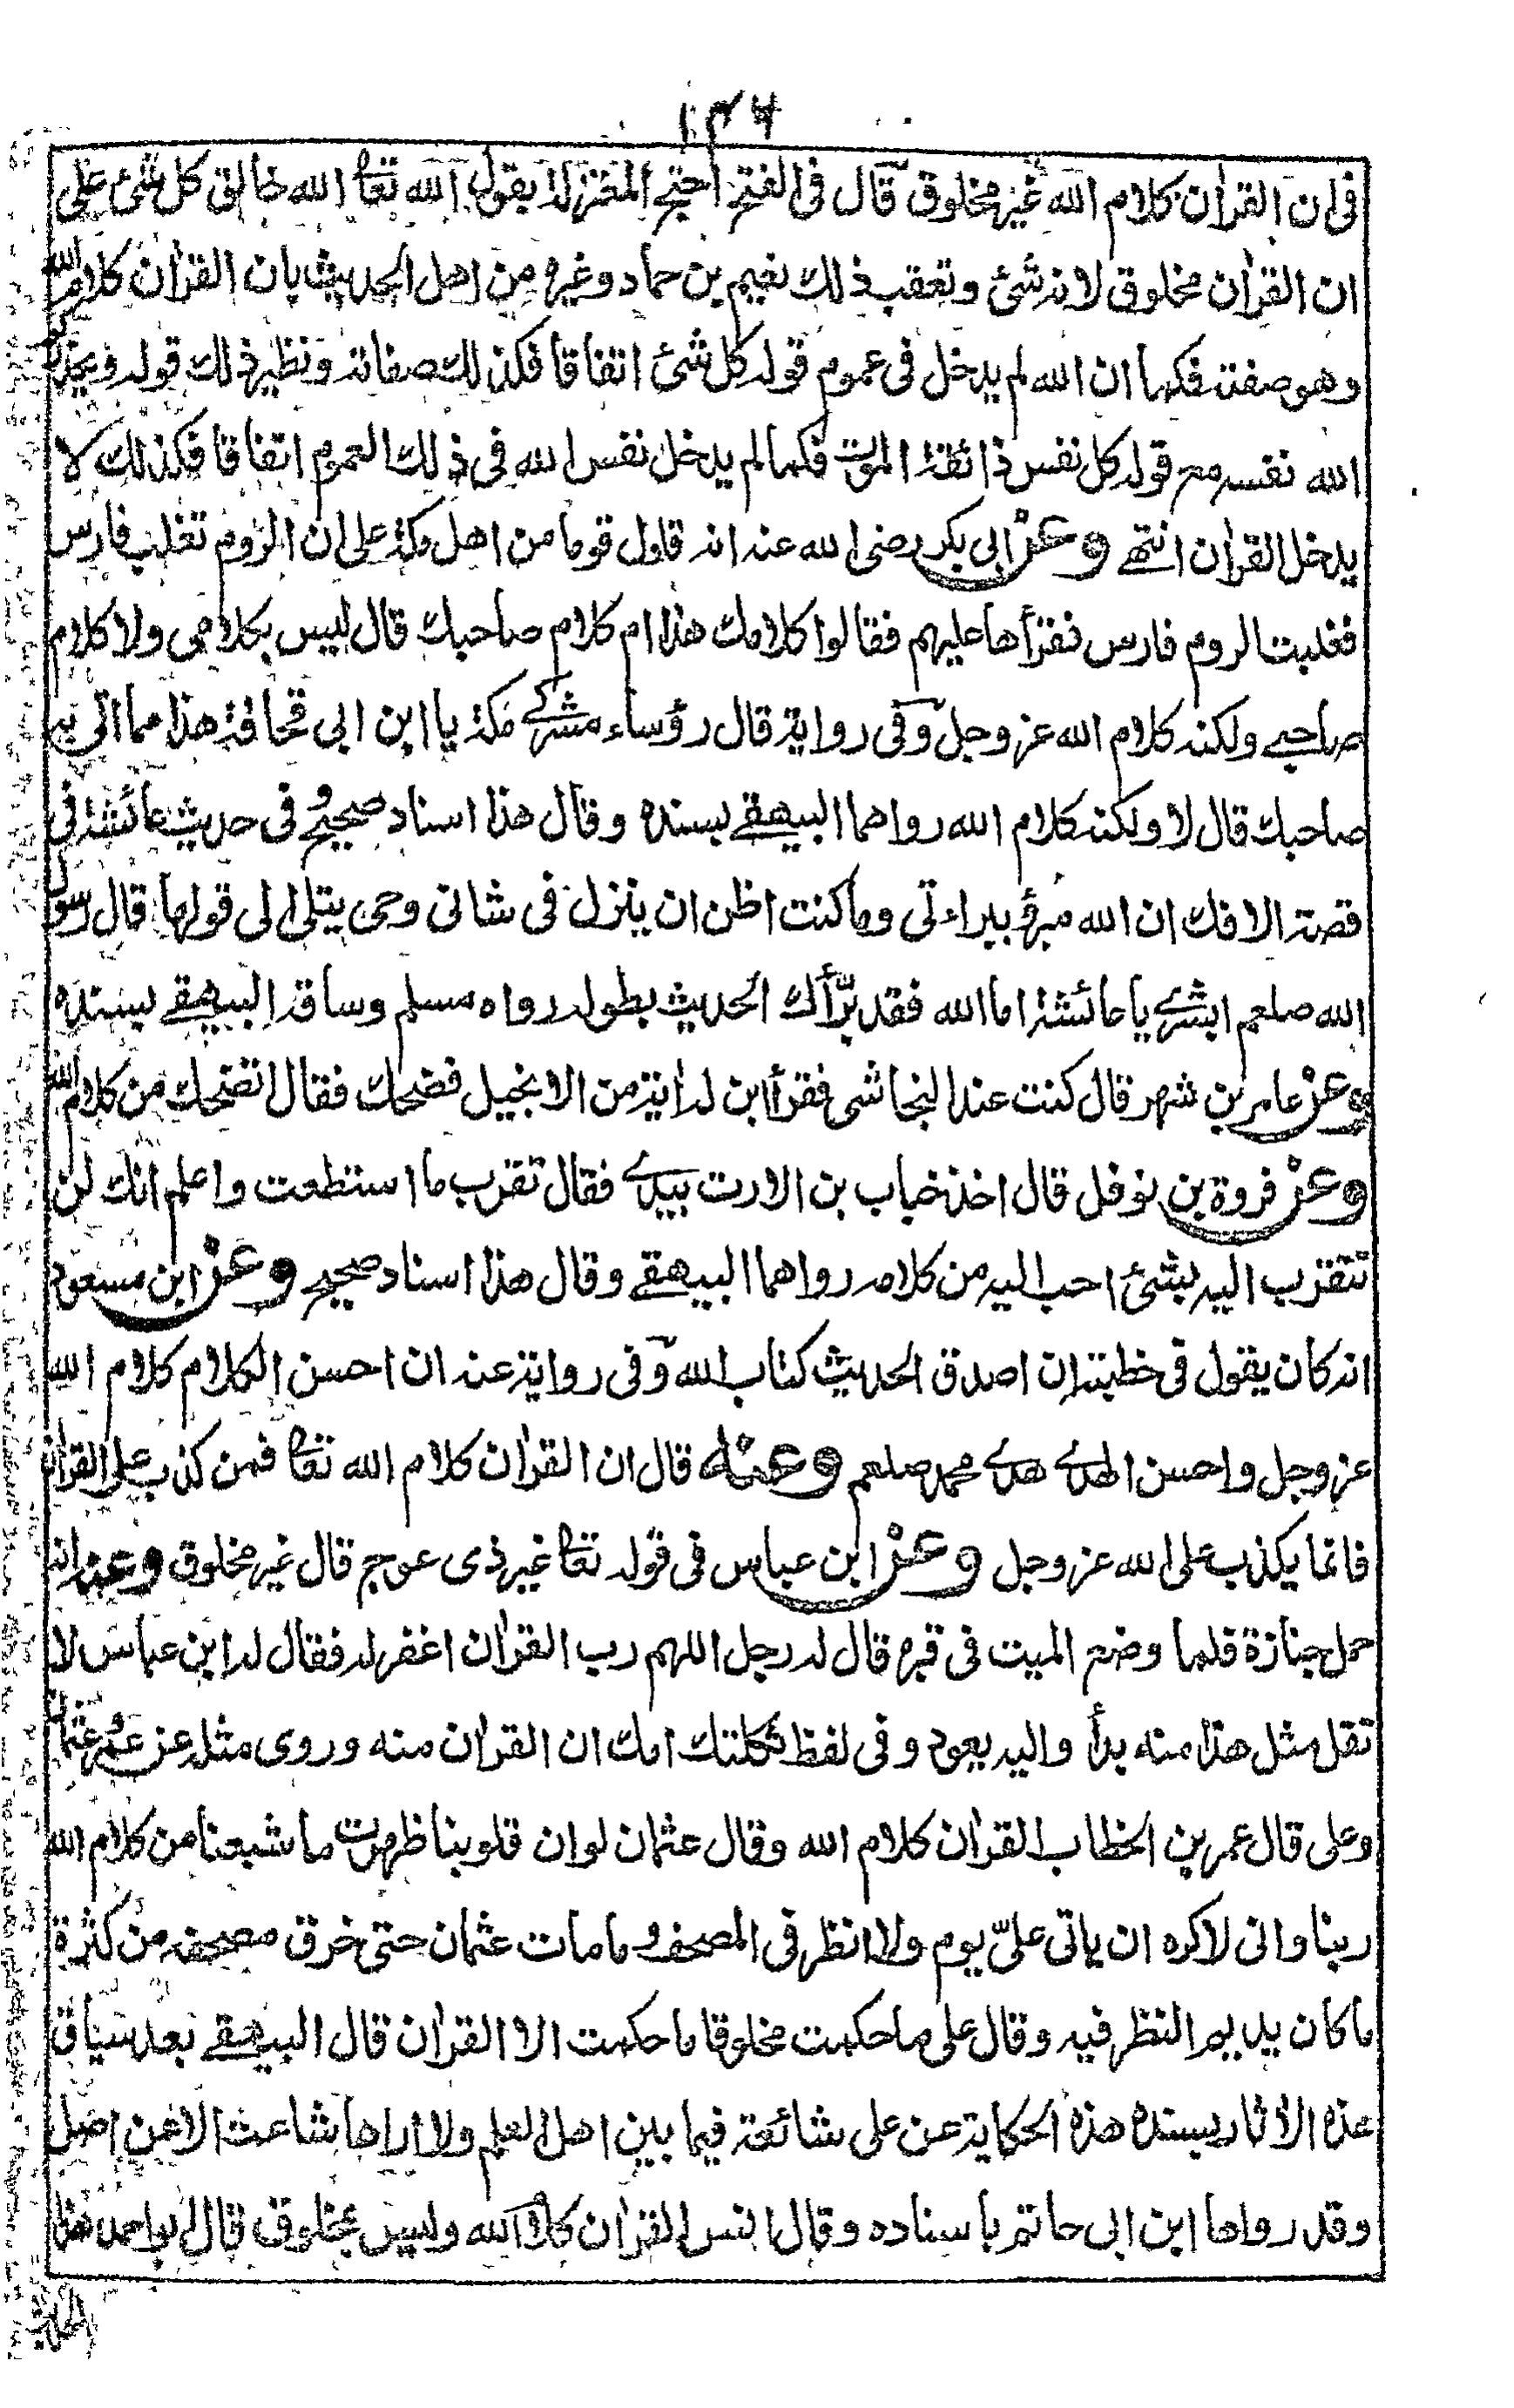 ١٣٦
فى ان القراٰن كلام الله غير مخلوق قال فى الفتح احتج المعتزلة بقول الله تعا الله خالق كل شئ على
ان القراٰن مخلوق لانه شئ وتعقب ذلك نعيم بن حماد وغيره من اهل الحديث بان القراٰن كلام الله
وهو صفته فكما ان الله لم يدخل فى عموم قوله كل شئ اتفاقا فكذلك صفاته ونظير ذلك قوله ويحذركم
الله نفسه مع قوله كل نفس ذائقة الموت فكما لم يدخل نفس الله فى ذلك العموم اتفاقا فكذلك لا
يدخل القراٰن انتهے وعن ابى بكر رضى الله عنه انه قاول قوما من اهل مكة على ان الروم تغلب فارس
فغلبت الروم فارس فقرأها عليهم فقالوا كلامك هذا ام كلام صاحبك قال ليس بكلامى ولا كلام
صاحبے ولكنه كلام الله عز وجل وفى رواية قال رؤساء مشركے مكة يا ابن ابى قحافة هذا مما اتى به
صاحبك قال لا ولكنه كلام الله رواهما البيهقے بسنده وقال هذا اسناد صحيح وفى حديث عائشة فى
قصة الافك ان الله مبرؤ ببراءتى وما كنت اظن ان ينزل فى شانى وحى يتلى الى قولها قال رسول
الله صلعم ابشرے يا عائشة اما الله فقد برّأك الحديث بطوله رواه مسلم وساقه البيهقے بسنده
وعن عامر بن شهر قال كنت عند النجاشى فقرأ ابن له اٰية من الانجيل فضحك فقال اتضحك من كلام الله
وعن فروة بن نوفل قال اخذ خباب بن الارت بيدے فقال تقرب ما استطعت واعلم انك لن
تتقرب اليه بشئ احب اليه من كلامه رواهما البيهقے وقال هذا اسناد صحيح وعن ابن مسعود
انه كان يقول فى خطبته ان اصدق الحديث كتاب الله وفى رواية عنه ان احسن الكلام كلام الله
عز وجل واحسن الهدے هدے محمد صلعم وعنه قال ان القراٰن كلام الله تعا فمن كذب على القراٰن
فانما يكذب على الله عز وجل وعن ابن عباس فى قوله تعا غير ذى عوج قال غير مخلوق وعنه انه
حمل جنازة فلما وضع الميت فى قبره قال له رجل اللهم رب القراٰن اغفر له فقال له ابن عباس لا
تقل مثل هذا منه بدأ واليه يعود وفى لفظ ثكلتك امك ان القراٰن منه وروى مثله عن عمر وعثمان
وعلى قال عمر بن الخطاب القراٰن كلام الله وقال عثمان لو ان قلوبنا ظهرت ما شبعنا من كلام الله
ربنا وانى لاكره ان ياتى علىّ يوم ولا انظر فى المصحف وما مات عثمان حتى خرق مصحفه من كثرة
ما كان يديم النظر فيه وقال على ما حكمت مخلوقا ما حكمت الا القراٰن قال البيهقے بعد سياق
هذه الاٰثار بسنده هذه الحكاية عن على شائعة فيما بين اهل العلم ولا اراها شاعت الا عن اصل
وقد رواها ابن ابى حاتم باسناده وقال انس القراٰن كلام الله وليس بمخلوق قال ابو احمد هذا
الحديث